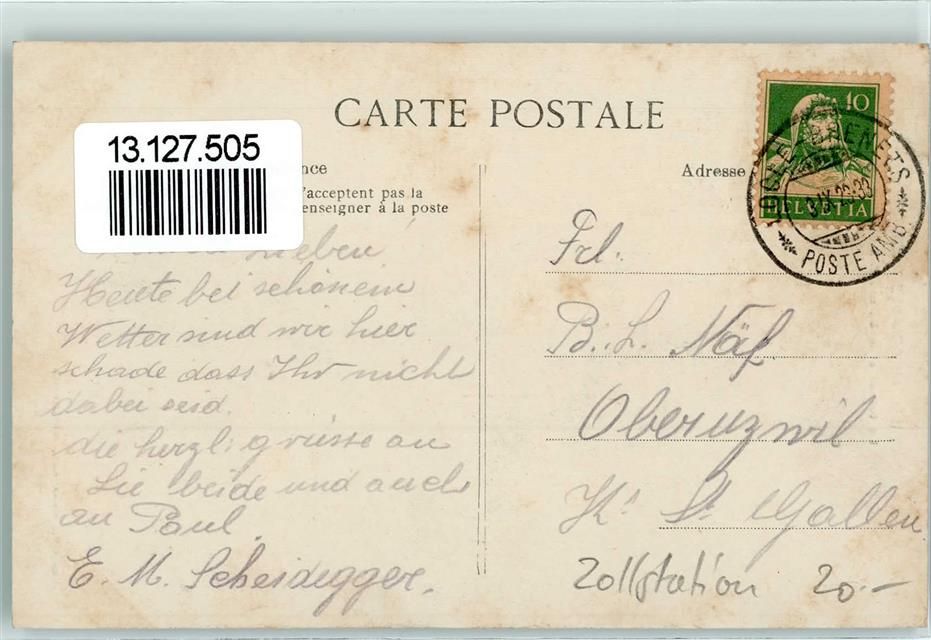 CARTE POSTALE
13.127.505
nce
'acceptent pas la
enseigner à la poste
Adresse
10
HELVETIA
LOCLE BRENETS
POSTE AMB
Lieben
Heute bei schönem
Wetter sind wir hier
schade dass Ihr nicht
dabei seid.
die herzl. grüsse an
Sie beide und auch
an Paul.
E. M. Scheidegger.
Frl.
B. L. Näf.
Oberuzwil
Kt. St. Gallen
Zollstation 20.-